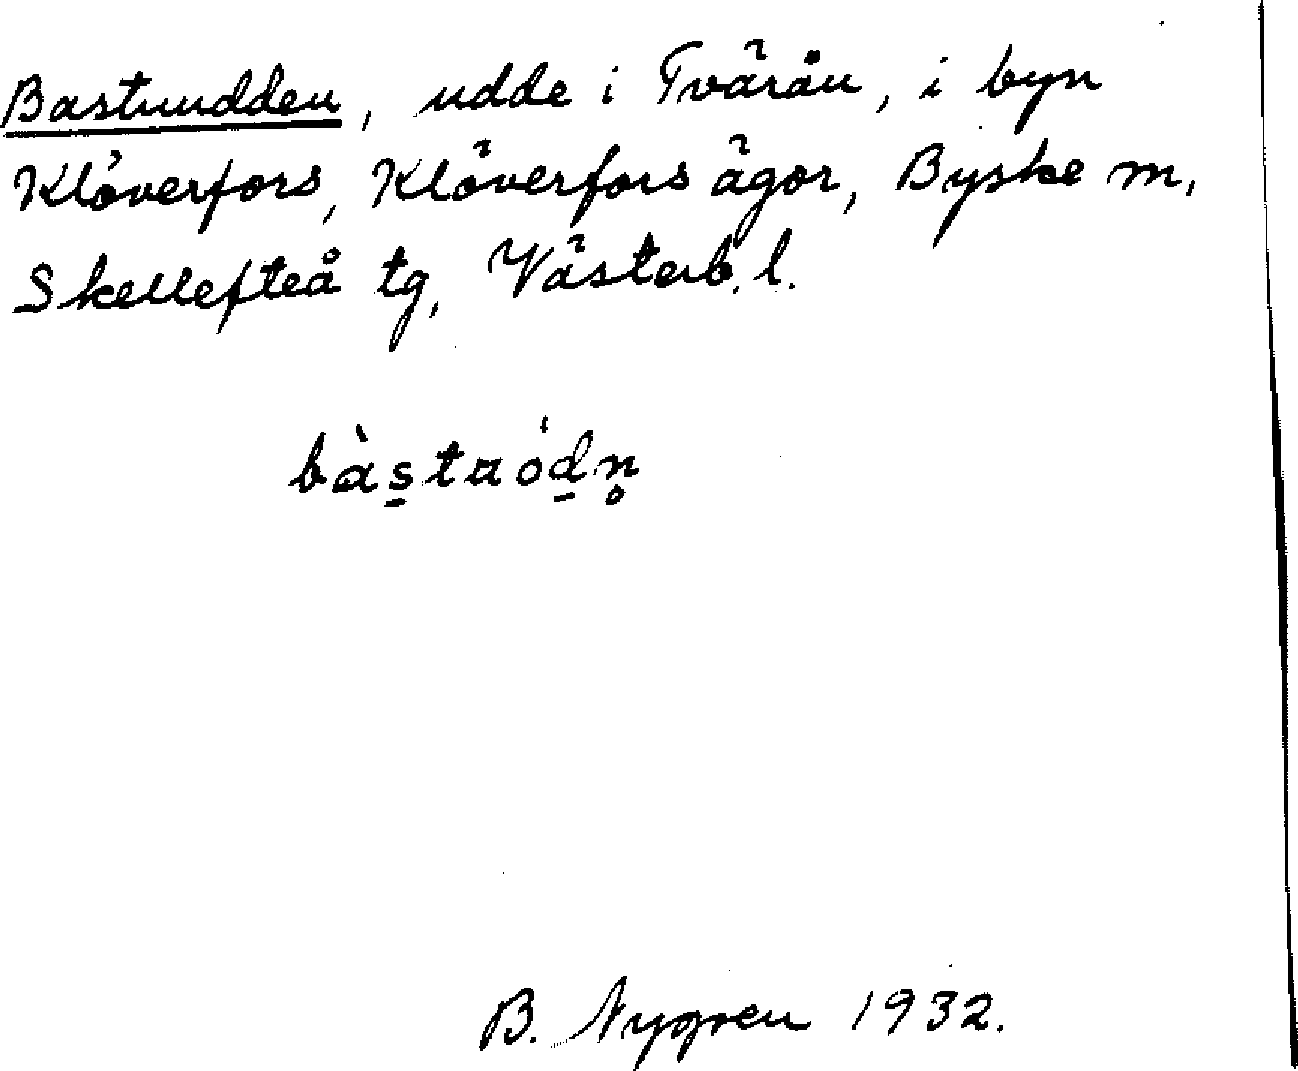 Bastuudden, udde i Tväråu, i byn
Klöverfors, Klöverfors ägor, Byske m.
Skellefteå tg, Västerb. l.
bàs̱tuóḏn̥
B. Nygren 1932.